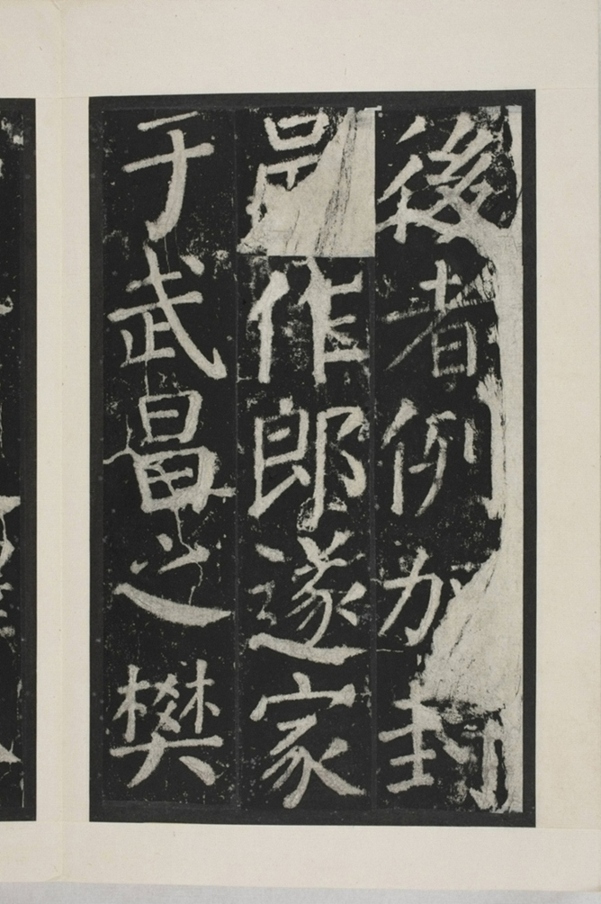 後者例加封
作郎遂家
于武昌之樊